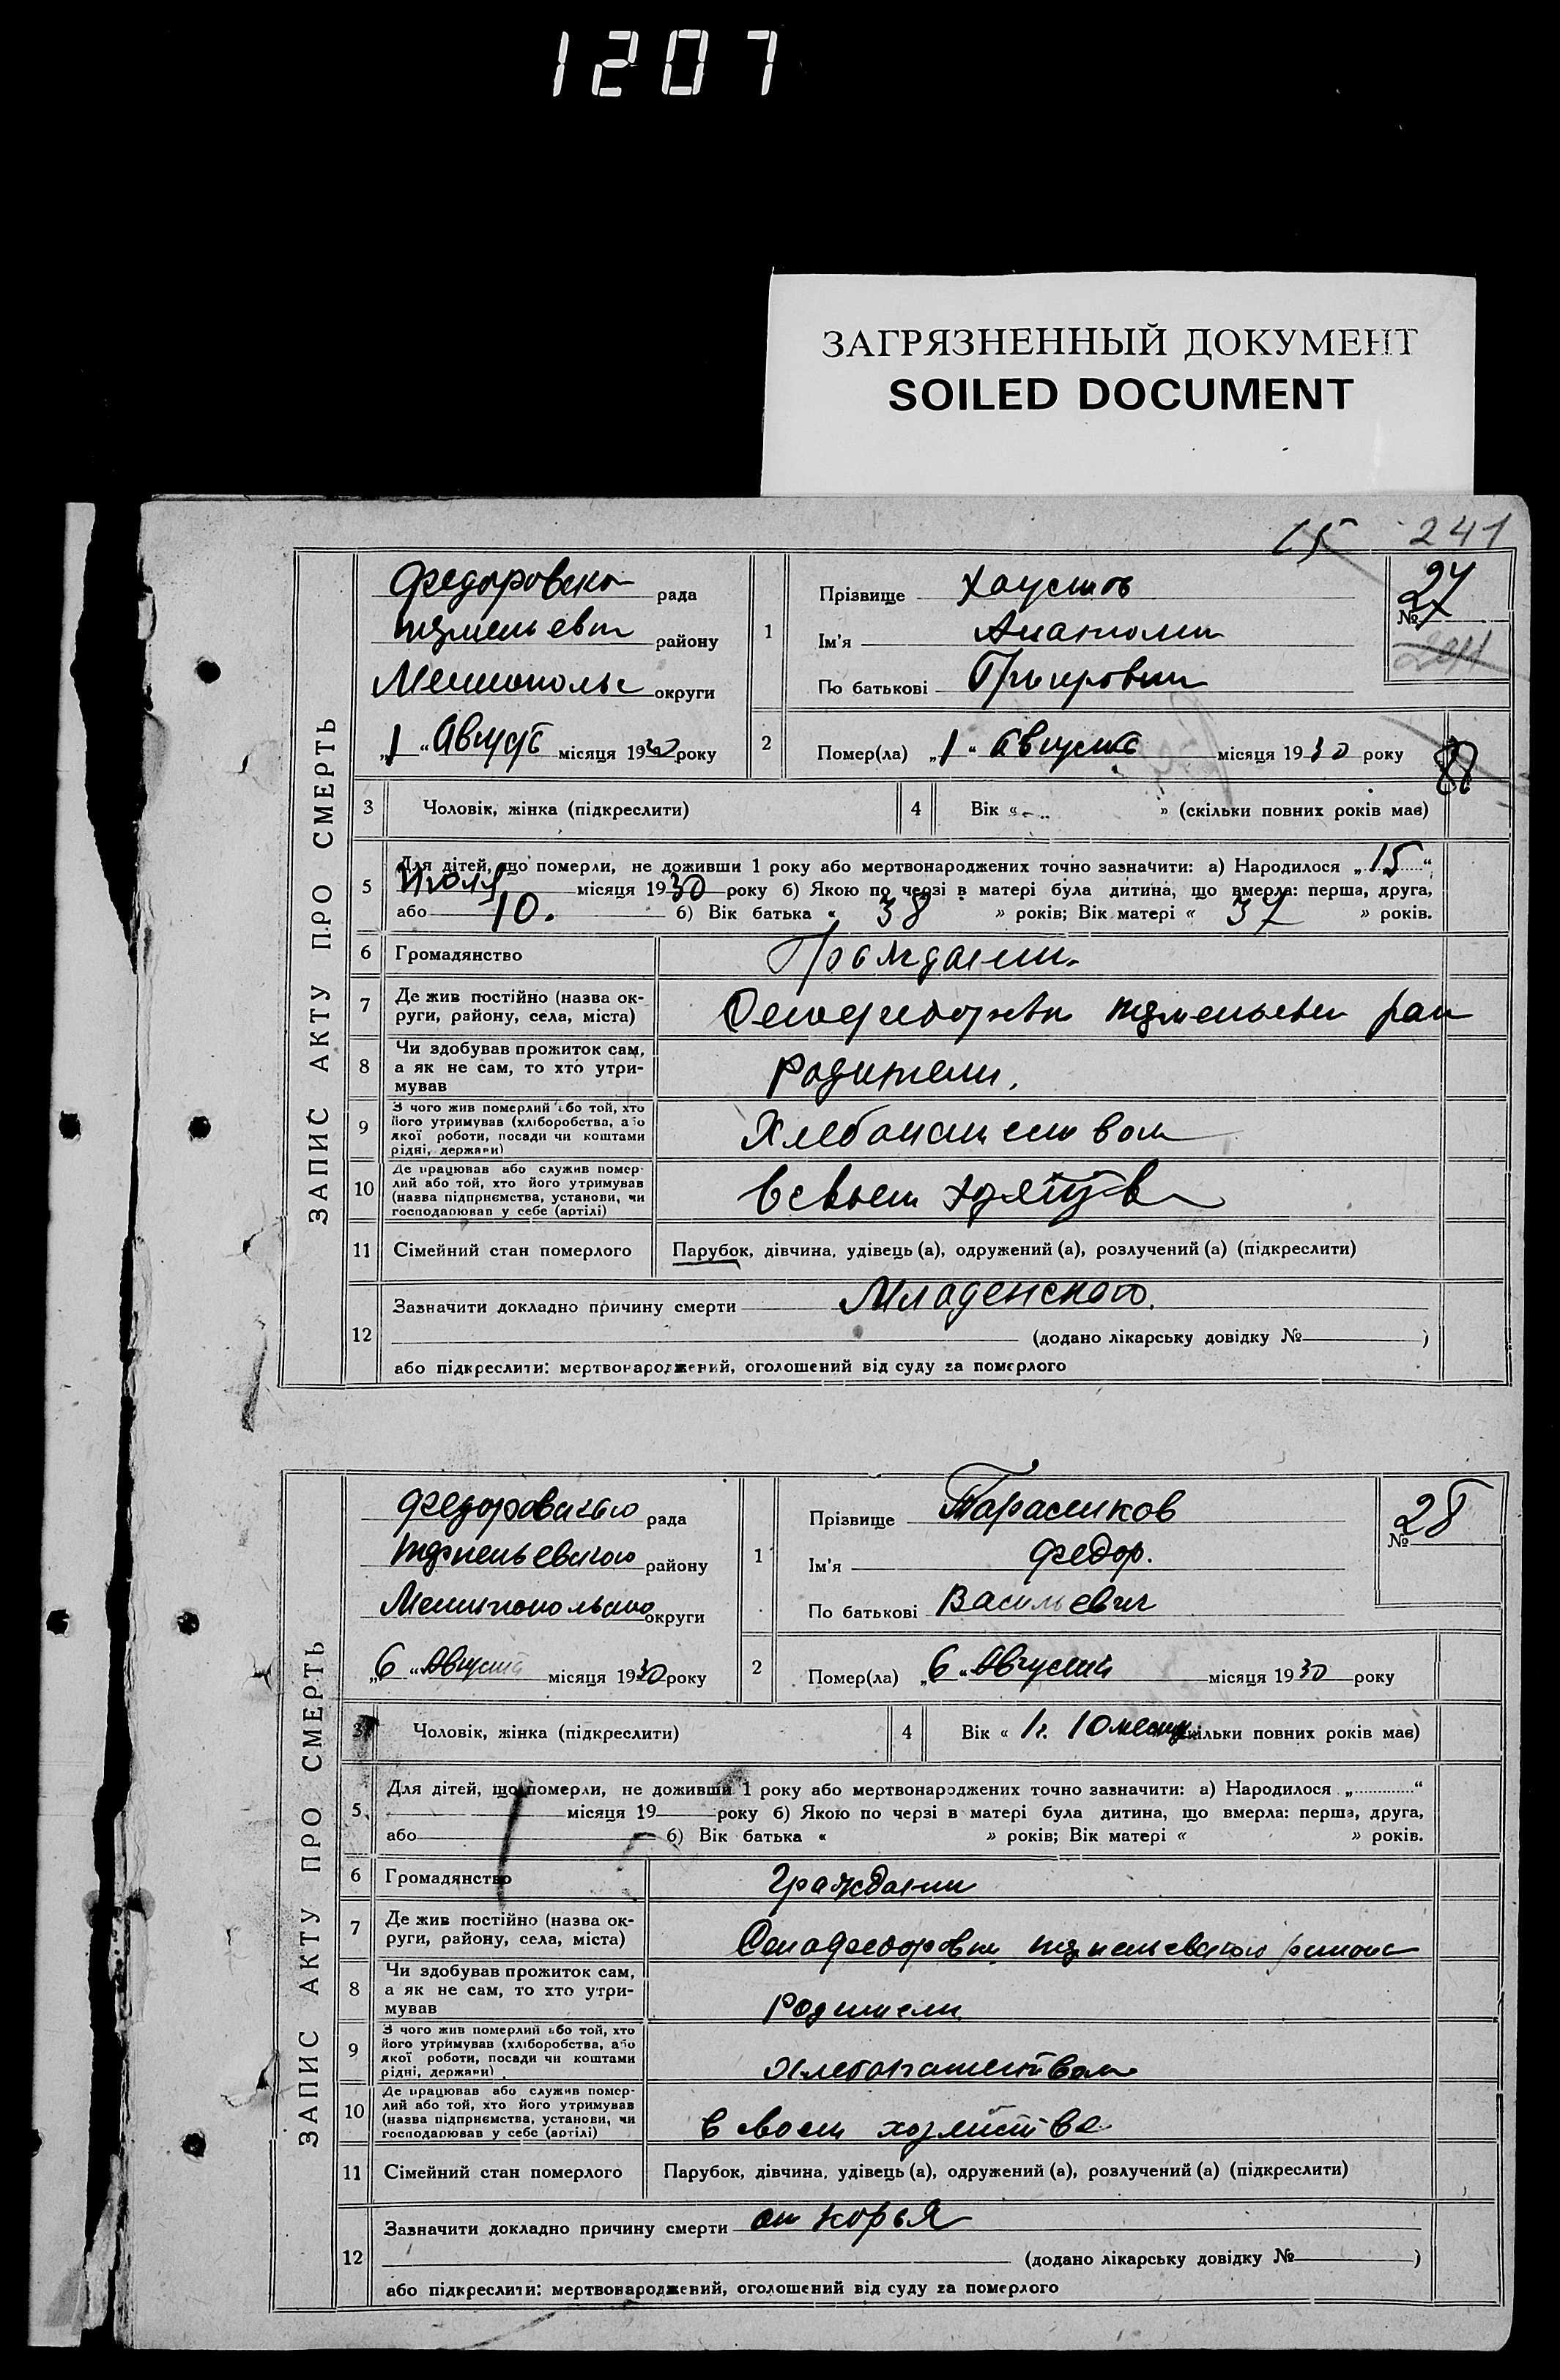 1207
ЗАГРЯЗНЕННЫЙ ДОКУМЕНТ
SOILED DOCUMENT
15 241
ЗАПИС АКТУ ПРО СМЕРТЬ
Федоровско рада
району
Мелитопольс округи
„1“ Августа місяця 1930 року
1
Прізвище Хаустов
Ім'я Анатолий
По батькові
№ 27
2
Помер(ла) „1“ Августа місяця 1930 року
88
3 Чоловік, жінка (підкреслити)
4 Вік « » (скільки повних років має)
5 Для дітей, що померли, не доживши 1 року або мертвонароджених точно зазначити: а) Народилося „15“
Июля місяця 1930 року б) Якою по черзі в матері була дитина, що вмерла: перша, друга,
або 10. б) Вік батька « 38 » років; Вік матері « 37 » років.
6 Громадянство Граждани.
7 Де жив постійно (назва ок-
руги, району, села, міста) рай
8 Чи здобував прожиток сам,
а як не сам, то хто утри-
мував Родители.
9 З чого жив померлий або той, хто
його утримував (хліборобства, або
якої роботи, посади чи коштами
рідні, держави) Хлебопашеством
10 Де працював або служив помер-
лий або той, хто його утримував
(назва підприємства, установи, чи
господарював у себе (артілі) В своем
11 Сімейний стан померлого Парубок, дівчина, удівець (а), одружений (а), розлучений (а) (підкреслити)
12 Зазначити докладно причину смерти Младенского.
(додано лікарську довідку № )
або підкреслити: мертвонароджений, оголошений від суду за померлого
ЗАПИС АКТУ ПРО СМЕРТЬ
Федоровского рада
району
Мелитопольского округи
„6“ Августа місяця 1930 року
1
Прізвище Тарасиков
Ім'я Федор.
По батькові Васильевич
№ 28
2
Помер(ла) „6“ Августа місяця 1930 року
3 Чоловік, жінка (підкреслити)
4 Вік « 1 г. 10 месяц скільки повних років має)
5 Для дітей, що померли, не доживши 1 року або мертвонароджених точно зазначити: а) Народилося „ “
місяця 19 року б) Якою по черзі в матері була дитина, що вмерла: перша, друга,
або б) Вік батька « » років; Вік матері « » років.
6 Громадянство Граждани
7 Де жив постійно (назва ок-
руги, району, села, міста) района
8 Чи здобував прожиток сам,
а як не сам, то хто утри-
мував Родители
9 З чого жив померлий або той, хто
його утримував (хліборобства, або
якої роботи, посади чи коштами
рідні, держави) Хлебопашеством
10 Де працював або служив помер-
лий або той, хто його утримував
(назва підприємства, установи, чи
господарював у себе (артілі) в своем хозяйстве
11 Сімейний стан померлого Парубок, дівчина, удівець (а), одружений (а), розлучений (а) (підкреслити)
12 Зазначити докладно причину смерти от корья
(додано лікарську довідку № )
або підкреслити: мертвонароджений, оголошений від суду за померлого